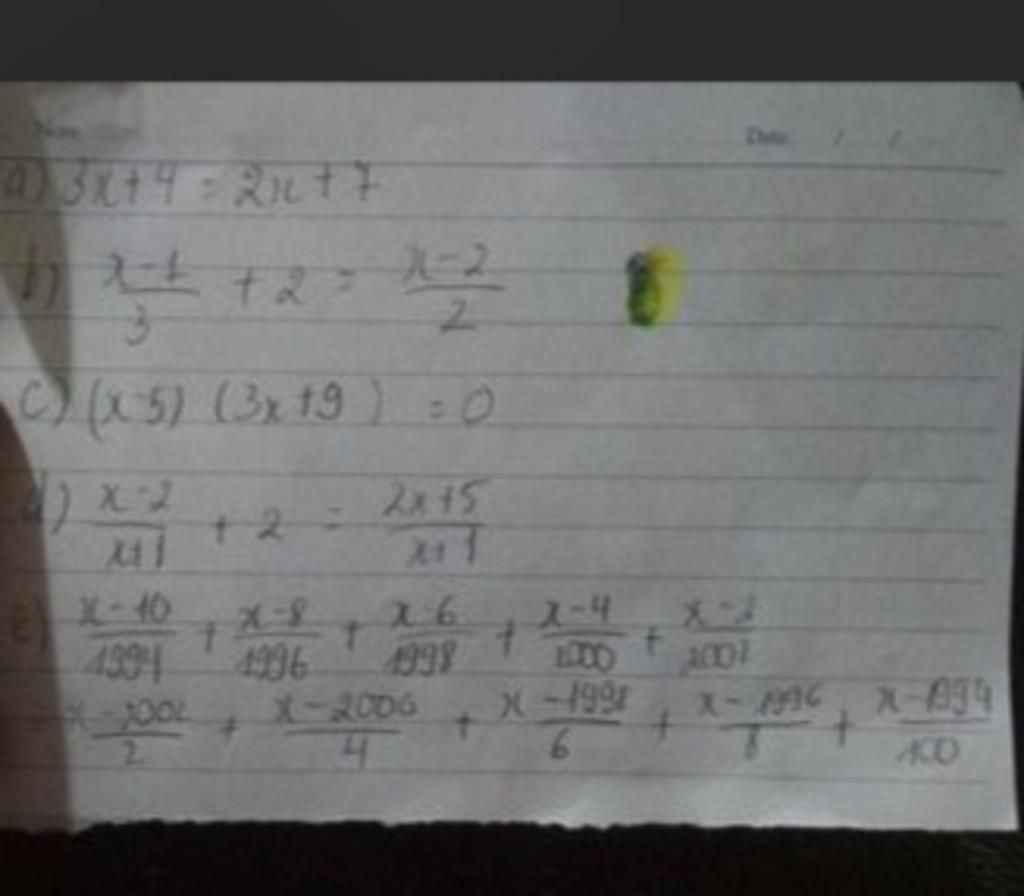 Date: / /
a) 3x+4 = 2x+7
b) \frac{x-1}{3} + 2 = \frac{x-2}{2}
c) (x-5) (3x+9) = 0
d) \frac{x-2}{x+1} + 2 = \frac{2x+5}{x+1}
e) \frac{x-10}{1994} + \frac{x-8}{1996} + \frac{x-6}{1998} + \frac{x-4}{2000} + \frac{x-2}{2002}
\frac{x-2002}{2} + \frac{x-2006}{4} + \frac{x-1998}{6} + \frac{x-1996}{8} + \frac{x-1994}{100}